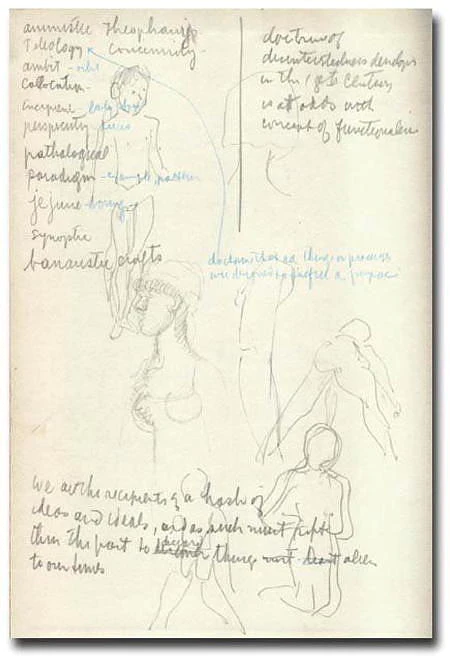 animistic theophanies
Teleology concinnity
ambit - orbit
collocation
incipient
perspicuity
pathological
paradigm - example, pattern
jejune - boring
synoptic
banaustic crafts
doctrine of
disinterestedness develops
in the 18th Century
is at odds with
concept of functionalism
doctrine that a thing or process
was designed to fulfill a purpose
we are the recipients of a hash of
ideas and ideals, and as such must sift
thru the past to things most alien
to our times